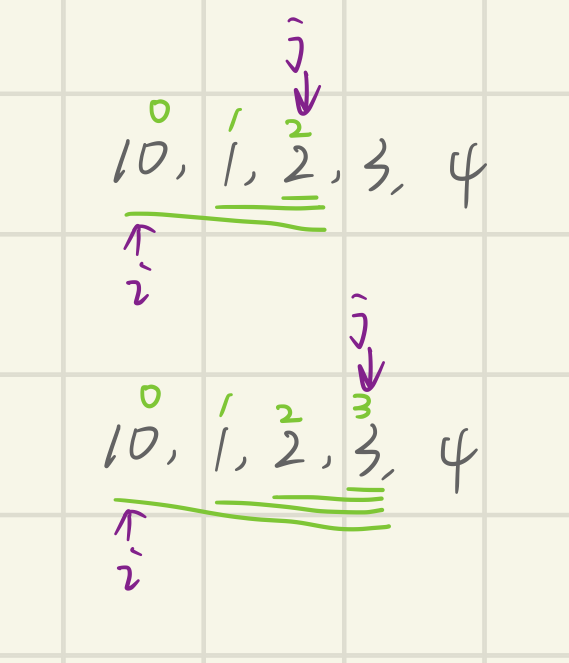 j
0 1 2
10, 1, 2, 3, 4
i
j
0 1 2 3
10, 1, 2, 3, 4
i